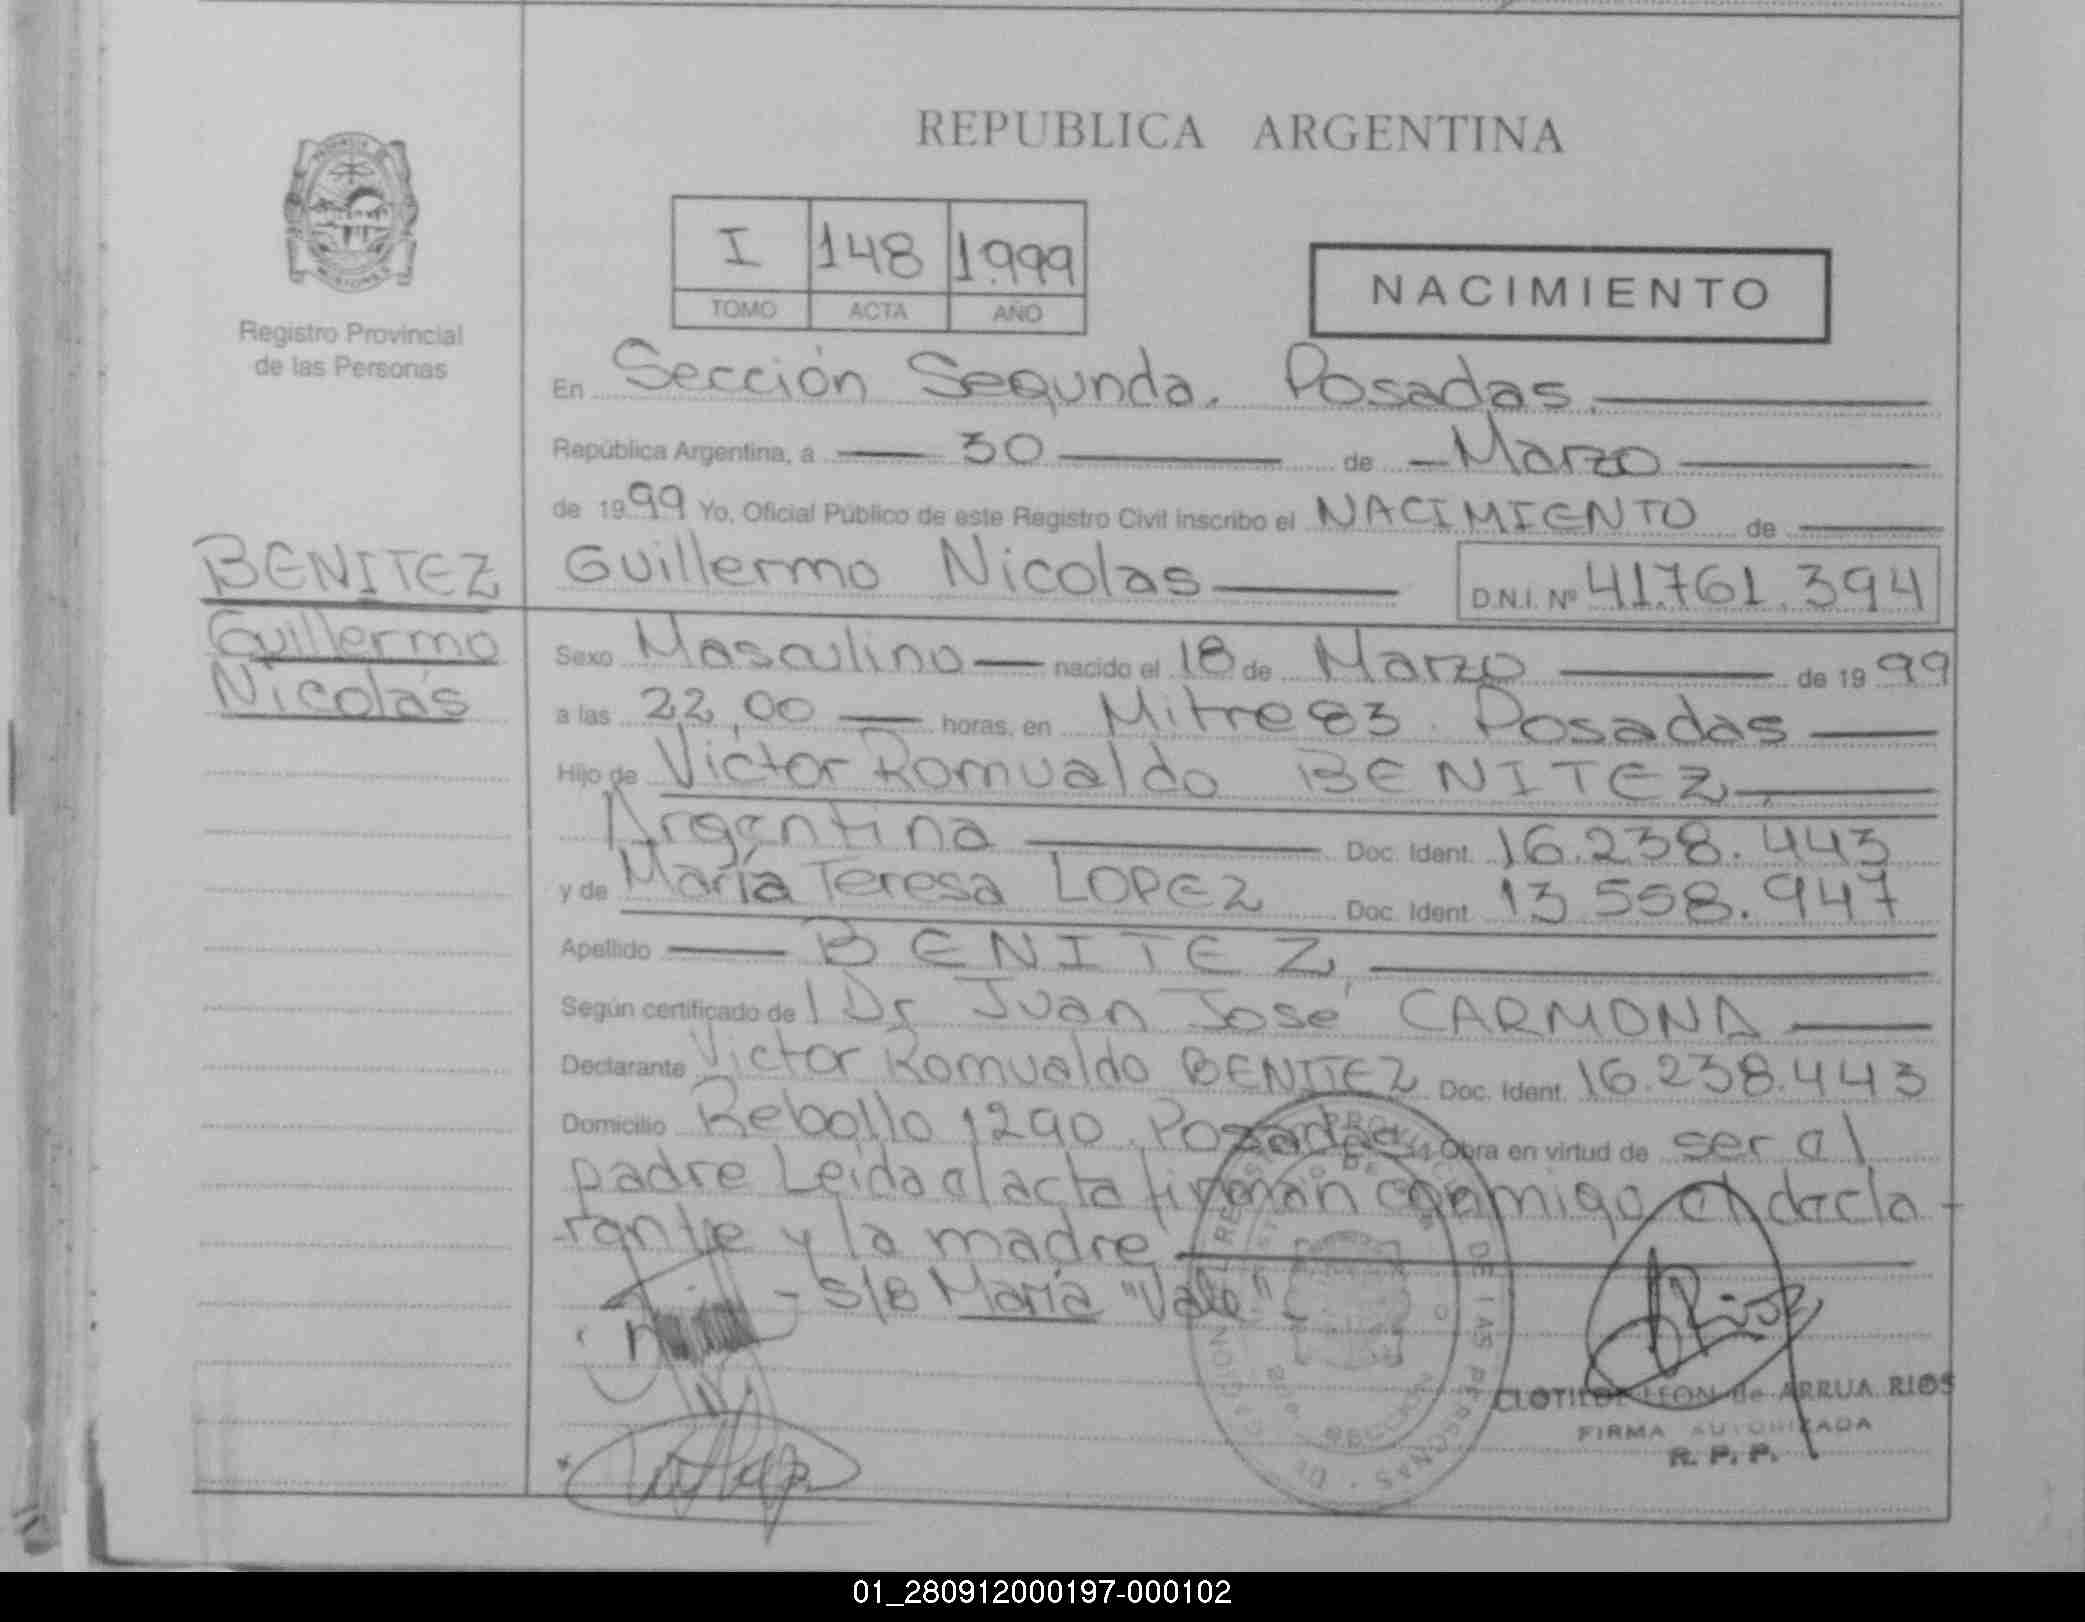 REPUBLICA ARGENTINA
I 148 1.999
TOMO ACTA AÑO
NACIMIENTO
Registro Provincial
de las Personas
En Sección Segunda. Posadas.
República Argentina, a 30 de Marzo
de 1999 Yo, Oficial Público de este Registro Civil inscribo el NACIMIENTO de
BENITEZ
Guillermo
Nicolás
Guillermo Nicolas D.N.I. Nº 41.761.394
Sexo Masculino nacido el 18 de Marzo de 1999
a las 22,00 horas, en Mitre 83. Posadas
Hijo de Victor Romualdo BENITEZ,
Argentina Doc. Ident. 16.238.443
y de María Teresa LOPEZ Doc. Ident. 13.558.947
Apellido BENITEZ
Según certificado de l Dr Juan José CARMONA
Declarante Victor Romualdo BENITEZ Doc. Ident. 16.238.443
Domicilio Rebollo 1290. Posadas Obra en virtud de ser el
padre Leída el acta firman conmigo el decla-
rante y la madre
- S/B María "Vale".
CLOTILDE LEON de ARRUA RIOS
FIRMA AUTORIZADA
R. P. P.
01_280912000197-000102